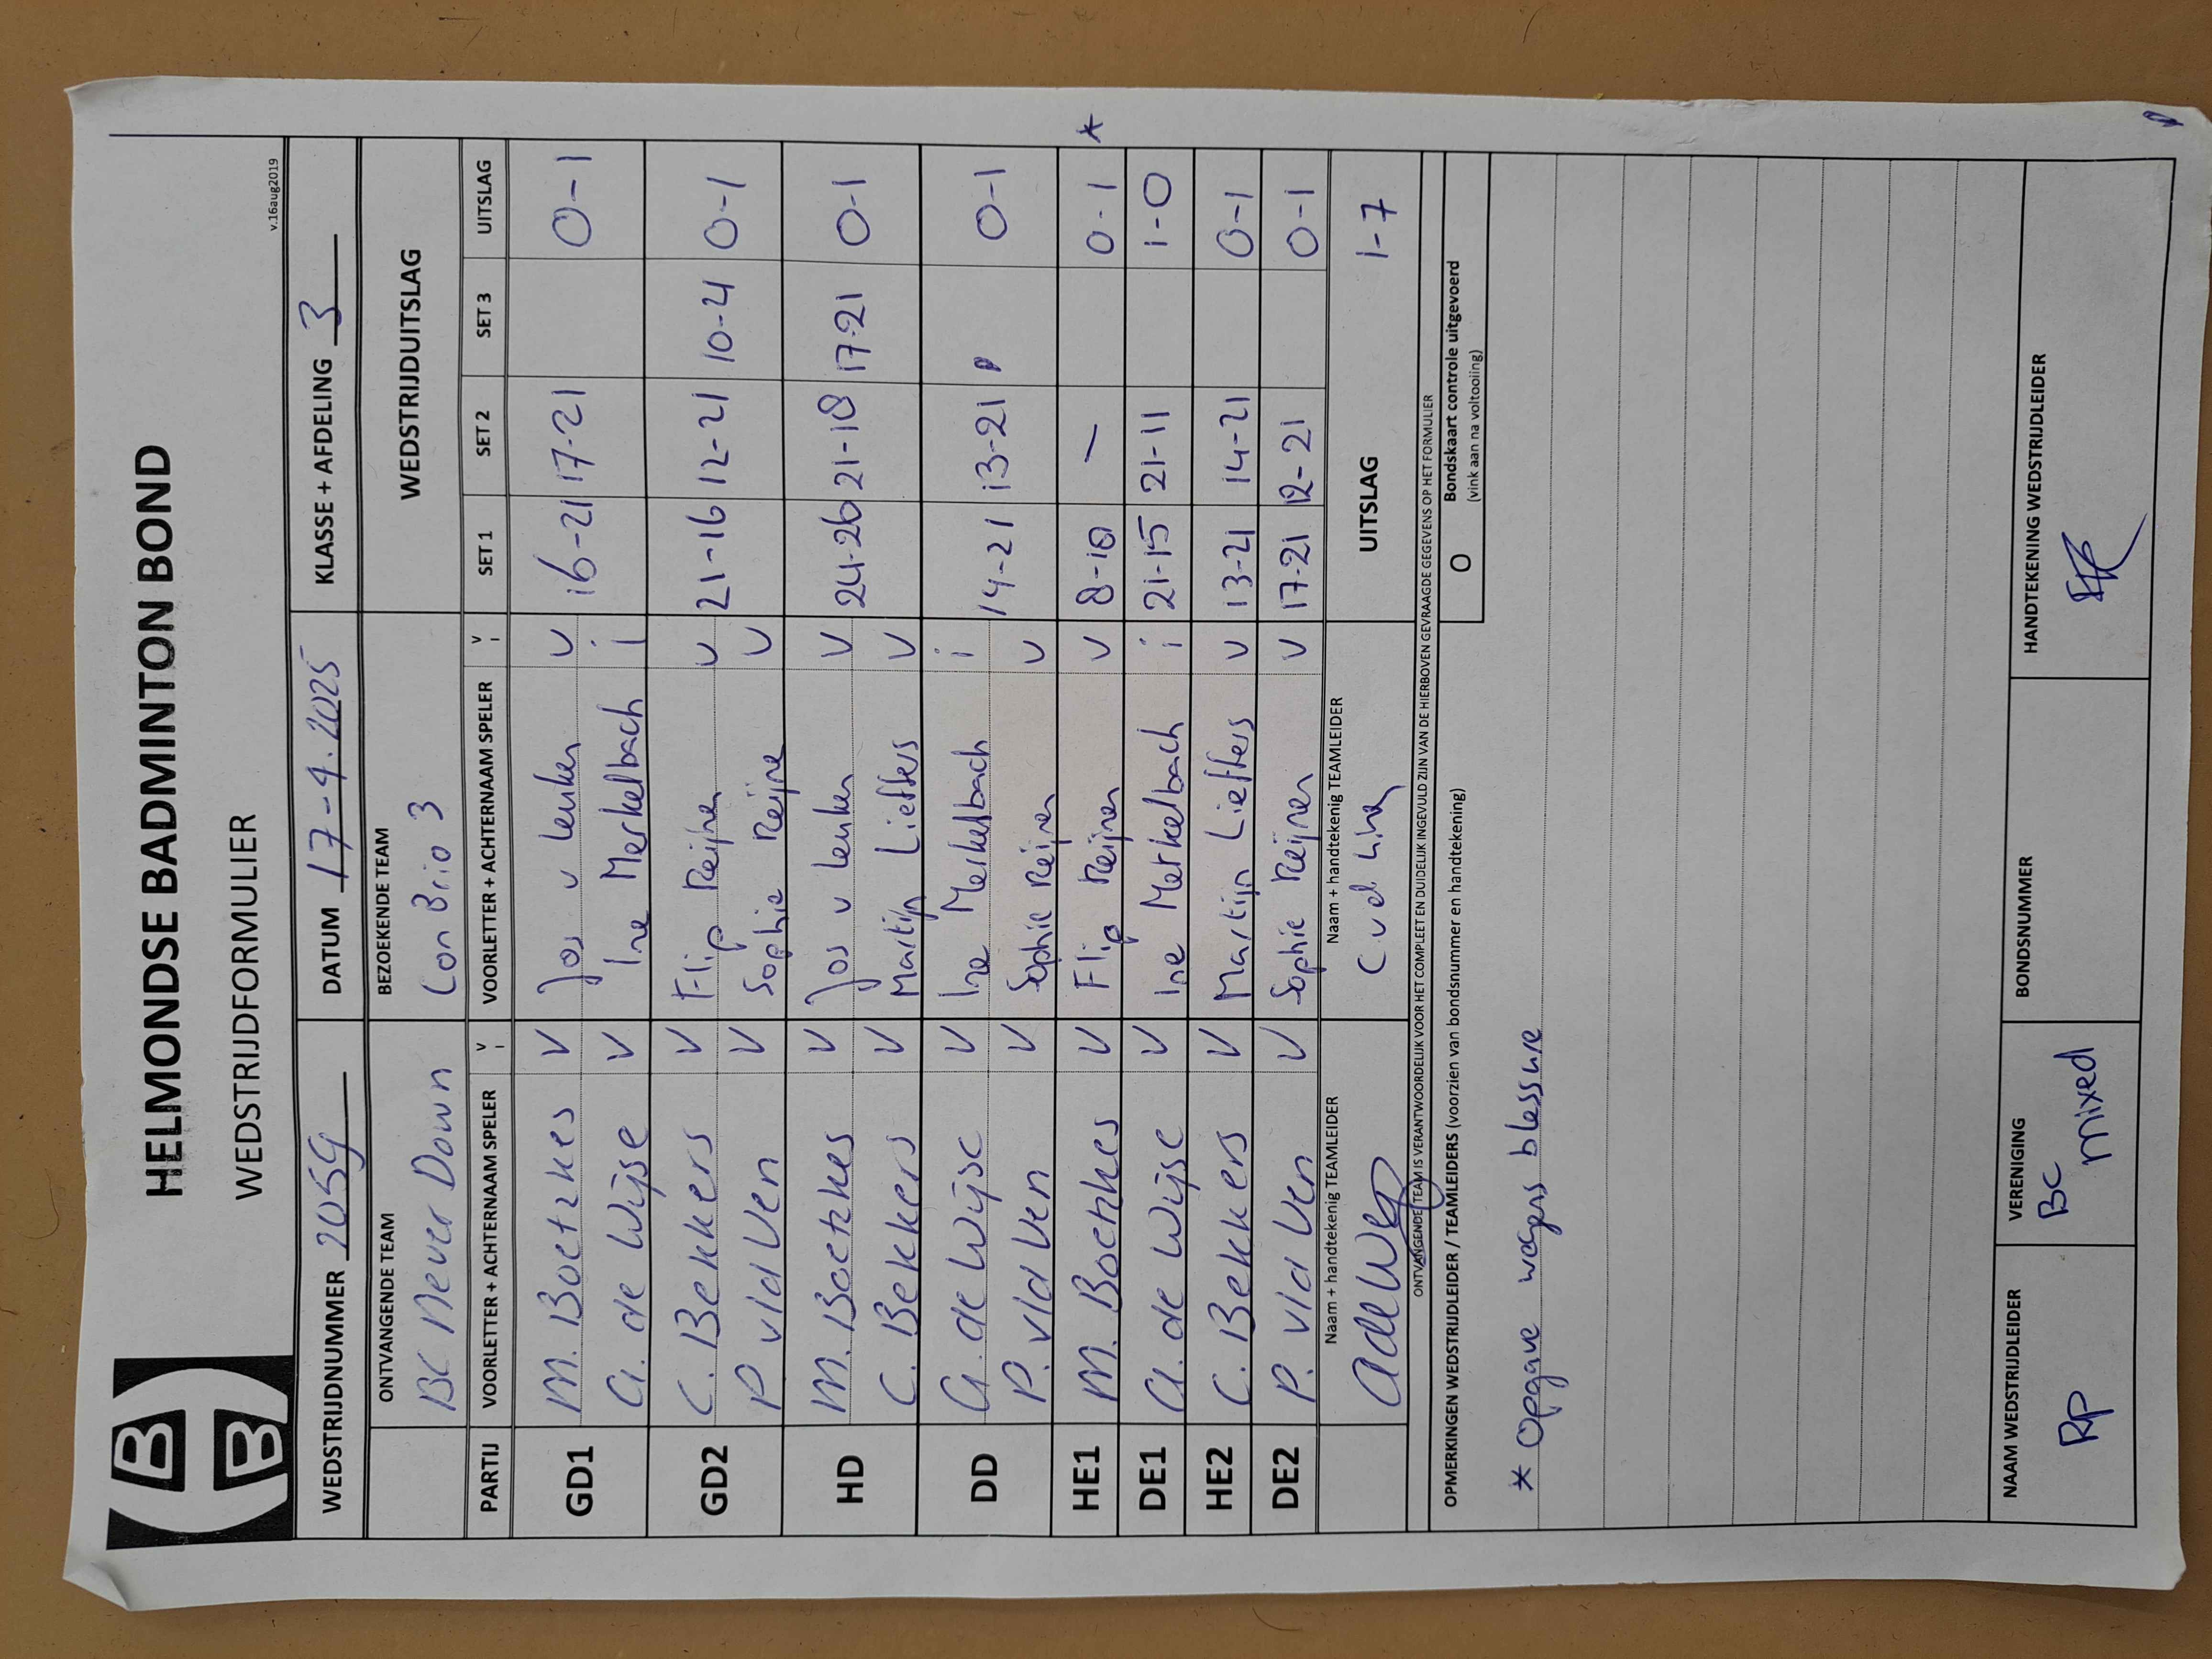 HELMONDSE BADMINTON BOND
WEDSTRIJDFORMULIER
v.16aug2019
WEDSTRIJDNUMMER 2059 DATUM 17-4-2025 KLASSE + AFDELING 3
ONTVANGENDE TEAM BEZOEKENDE TEAM WEDSTRIJDUITSLAG
BC Never Down Con Brio 3
PARTIJ VOORLETTER + ACHTERNAAM SPELER V I VOORLETTER + ACHTERNAAM SPELER V I SET 1 SET 2 SET 3 UITSLAG
GD1 M. Boetzkes V Jos v Leuken V 16-21 17-21 0-1
A. de Wijse V Ine Merkelbach i
GD2 C. Bekkers V Flip Reijnen V 21-16 12-21 10-21 0-1
P. v/d Ven V Sophie Reijne V
HD M. Boetzkes V Jos v Leuken V 24-26 21-18 17-21 0-1
C. Bekkers V Martijn Lieffers V
DD A. de Wijse V Ine Merkelbach i 14-21 13-21 0-1
P. v/d Ven V Sophie Reijnen V
HE1 M. Boetzkes V Flip Reijnen V 8-10 - 0-1 *
DE1 A. de Wijse V Ine Merkelbach i 21-15 21-11 1-0
HE2 C. Bekkers V Martijn Lieffers V 13-21 14-21 0-1
DE2 P. v/d Ven V Sophie Reijnen V 17-21 12-21 0-1
Naam + handtekenig TEAMLEIDER Naam + handtekenig TEAMLEIDER UITSLAG 1-7
ONTVANGENDE TEAM IS VERANTWOORDELIJK VOOR HET COMPLEET EN DUIDELIJK INGEVULD ZIJN VAN DE HIERBOVEN GEVRAAGDE GEGEVENS OP HET FORMULIER
OPMERKINGEN WEDSTRIJDLEIDER / TEAMLEIDERS (voorzien van bondsnummer en handtekening) O Bondskaart controle uitgevoerd
(vink aan na voltooiing)
* Opgave wegens blessure
NAAM WEDSTRIJDLEIDER VERENIGING BONDSNUMMER HANDTEKENING WEDSTRIJDLEIDER
RP BC
mixed